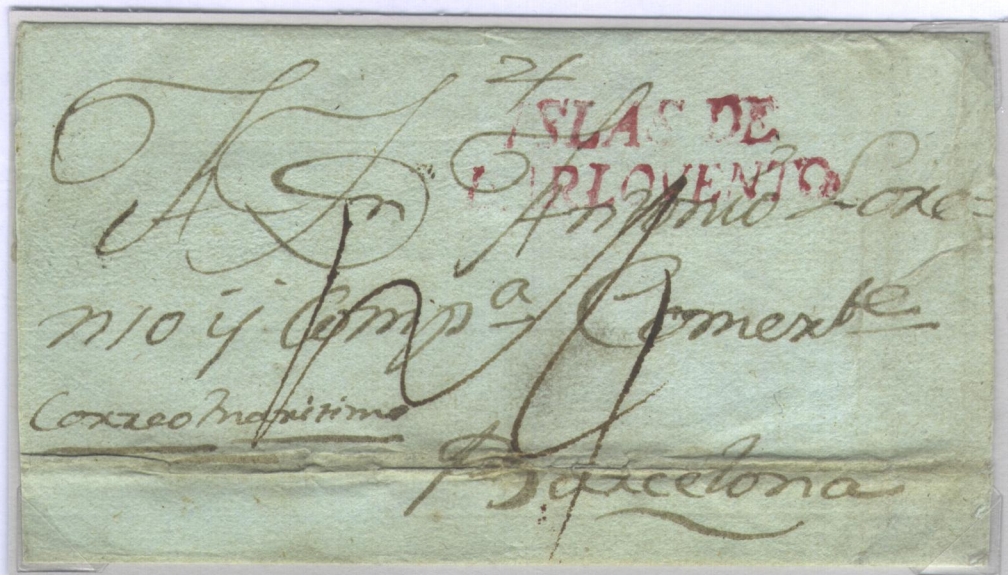 ISLAS DE
BARLOVENTO
A Dn Antonio Lore=
nio ij Compa Comerte
Correo Maritimo
Barcelona